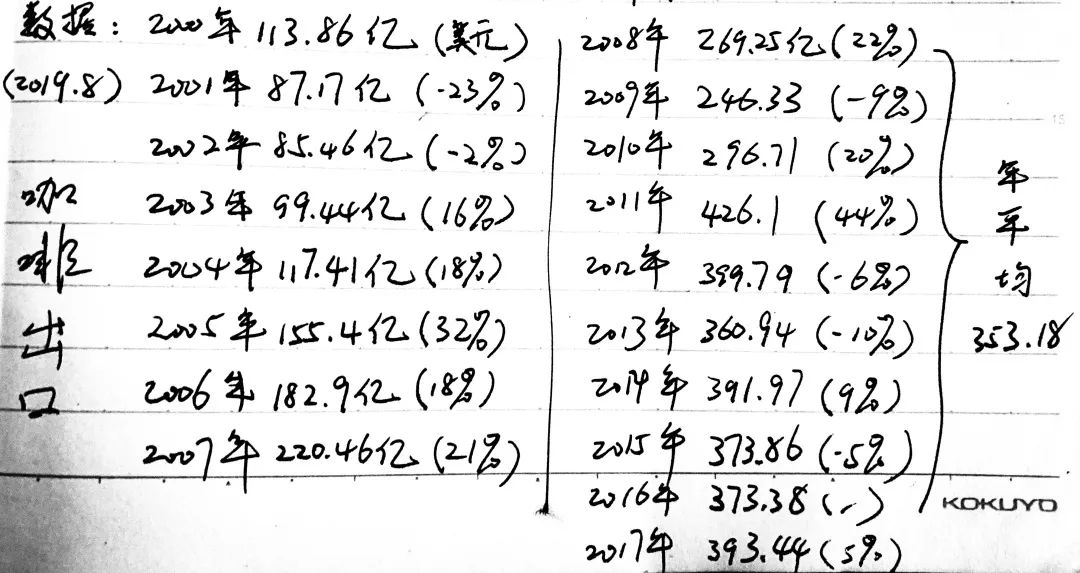 数据：2000年 113.86亿（美元）
(2019.8) 2001年 87.17亿 (-23%)
2002年 85.46亿 (-2%)
2003年 99.44亿 (16%)
2004年 117.41亿 (18%)
2005年 155.4亿 (32%)
2006年 182.9亿 (18%)
2007年 220.46亿 (21%)
咖啡出口
2008年 269.25亿 (22%)
2009年 246.33 (-9%)
2010年 296.71 (20%)
2011年 426.1 (44%)
2012年 399.79 (-6%)
2013年 360.94 (-10%)
2014年 391.97 (9%)
2015年 373.86 (-5%)
2016年 373.38 (-)
2017年 393.44 (5%)
年平均
353.18
KOKUYO